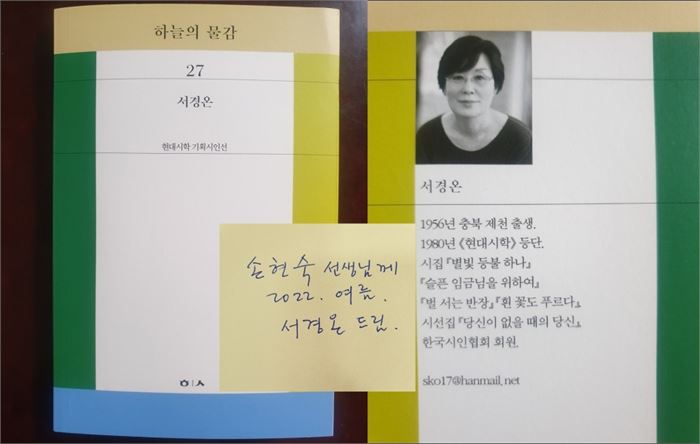 하늘의 물감
27
서경온
현대시학 기획시인선
손현숙 선생님께
2022. 여름.
서경온 드림.
ㅎㅣㅅ
서경온
1956년 충북 제천 출생.
1980년 《현대시학》 등단.
시집 『별빛 등불 하나』
『슬픈 임금님을 위하여』
『벌 서는 반장』 『흰 꽃도 푸르다』
시선집 『당신이 없을 때의 당신』
한국시인협회 회원.
sko17@hanmail.net